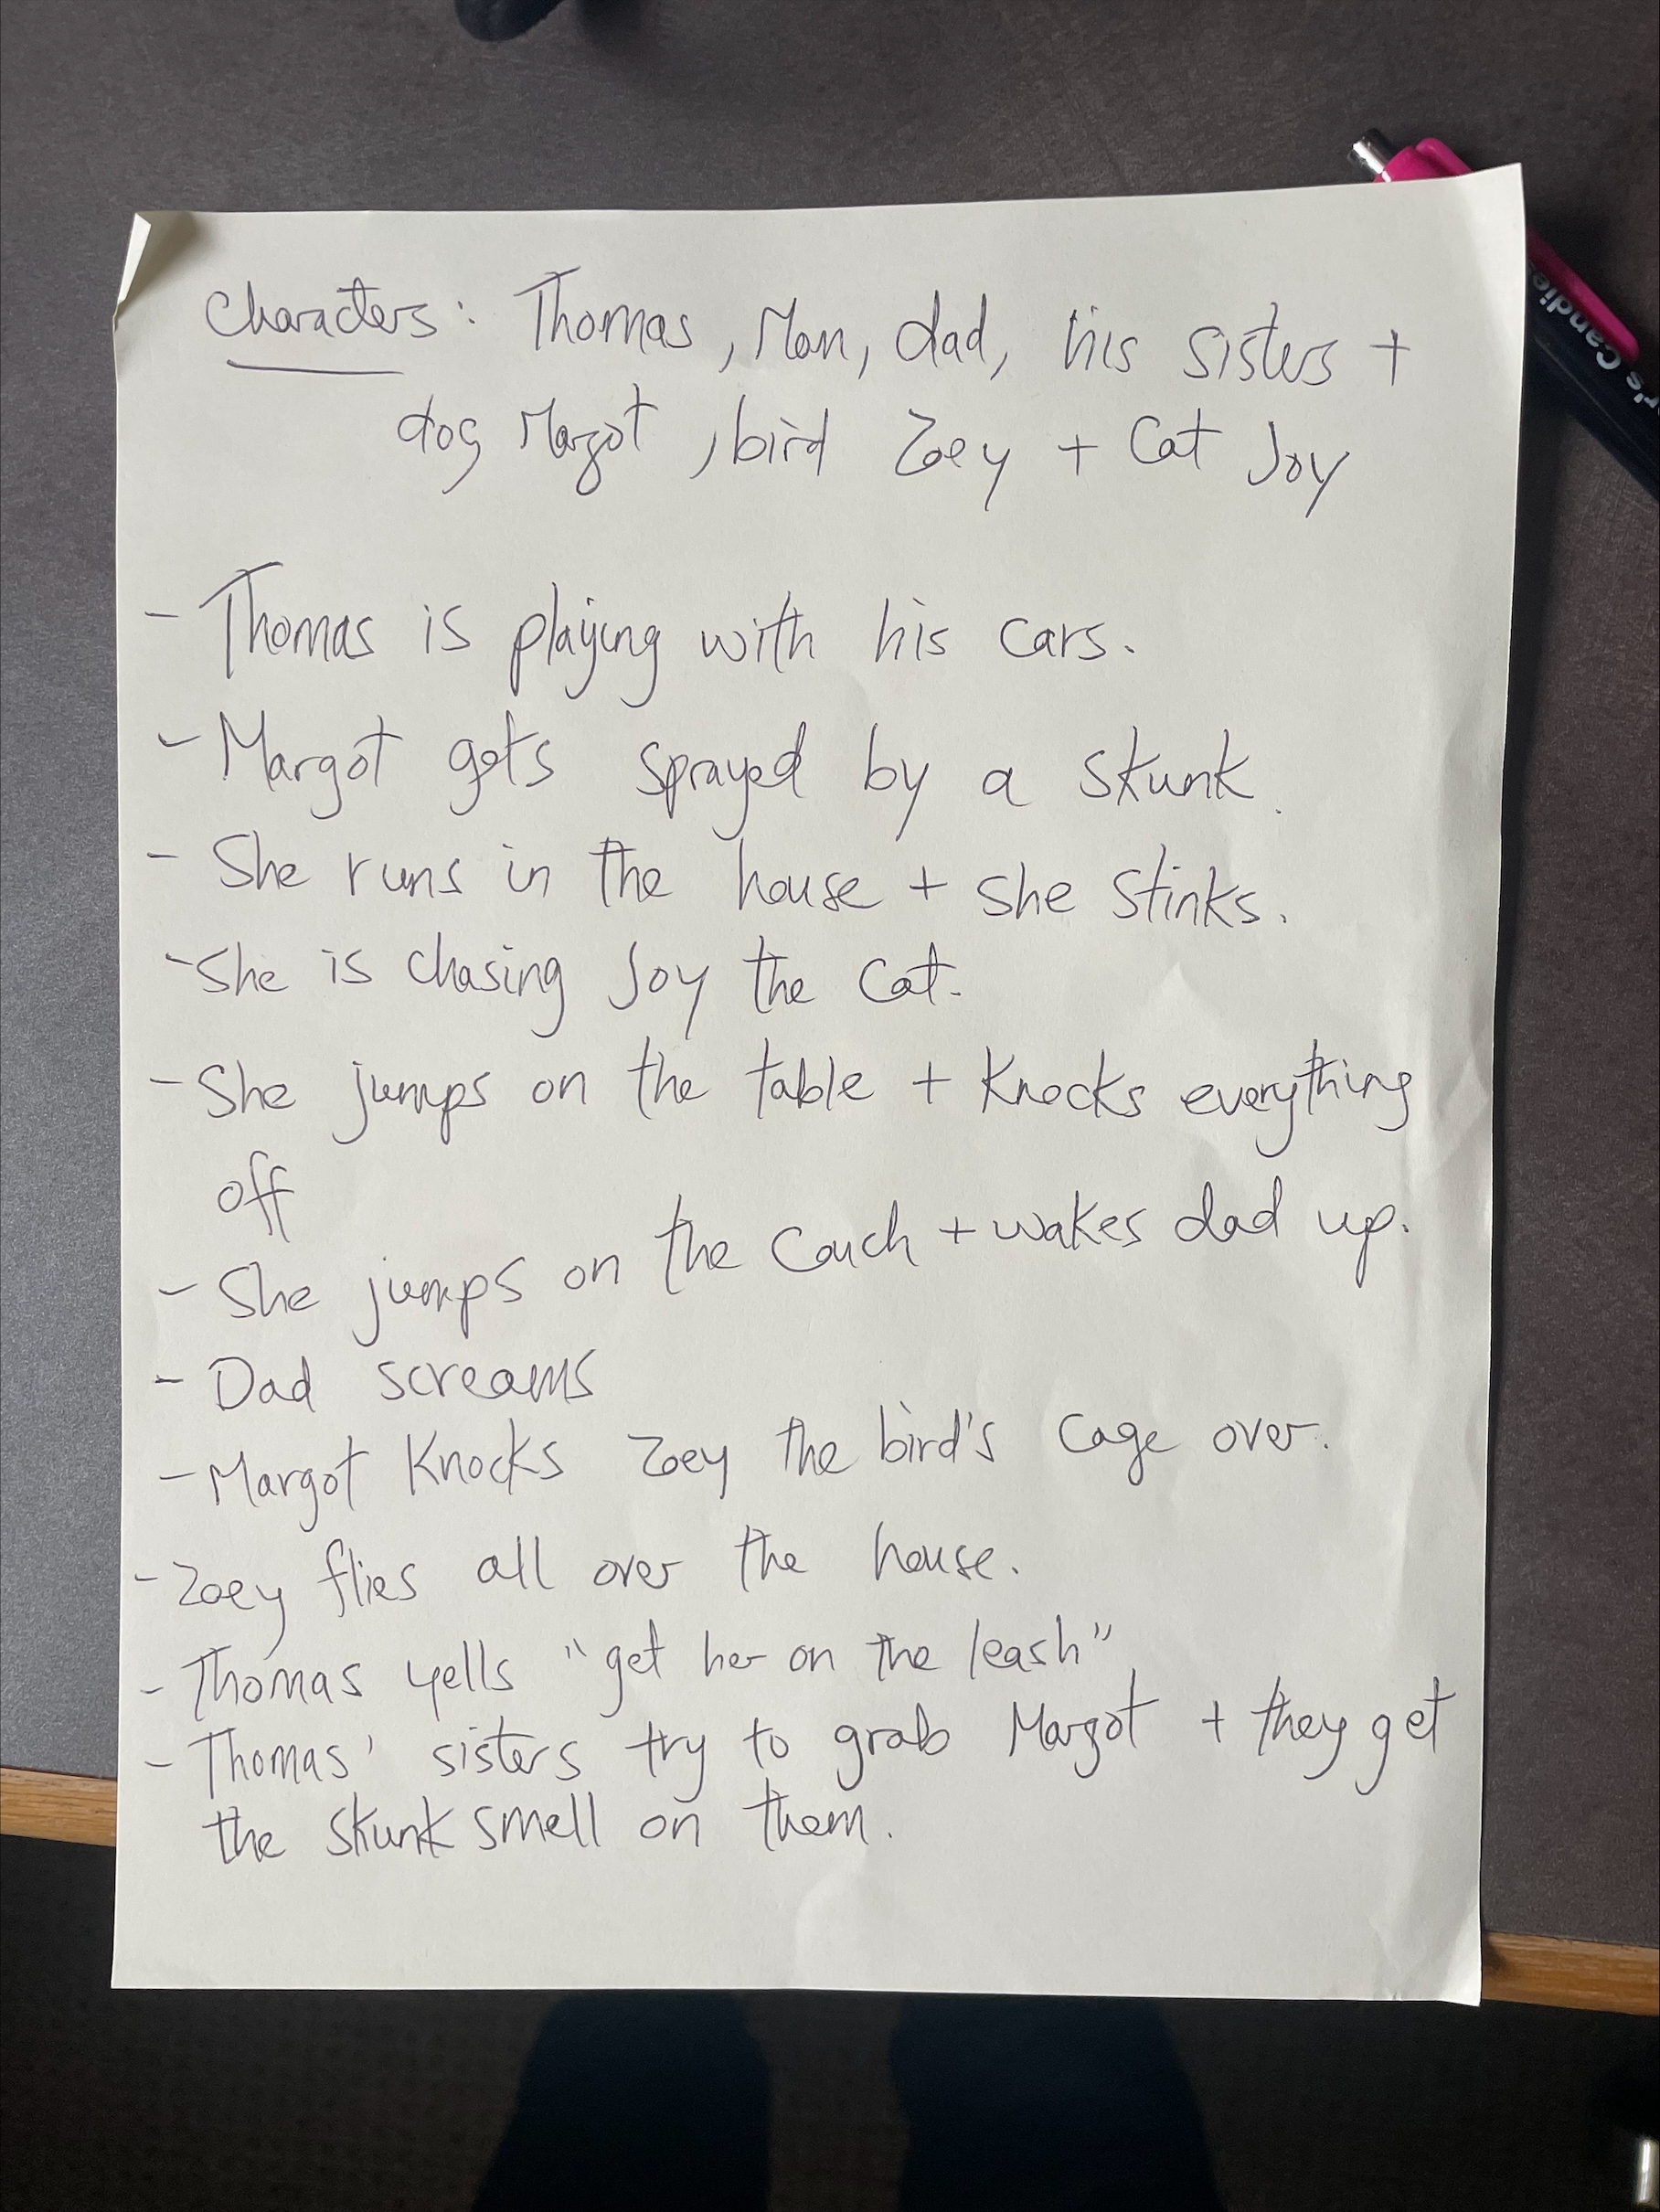 Characters: Thomas, Mom, dad, his sisters +
dog Margot, bird Zoey + Cat Joy
- Thomas is playing with his cars.
- Margot gets sprayed by a skunk.
- She runs in the house + she stinks.
- She is chasing Joy the cat.
- She jumps on the table + knocks everything
off
- She jumps on the couch + wakes dad up.
- Dad screams
- Margot knocks Zoey the bird's cage over.
- Zoey flies all over the house.
- Thomas yells "get her on the leash"
- Thomas' sisters try to grab Margot + they get
the skunk smell on them.
r's Candies